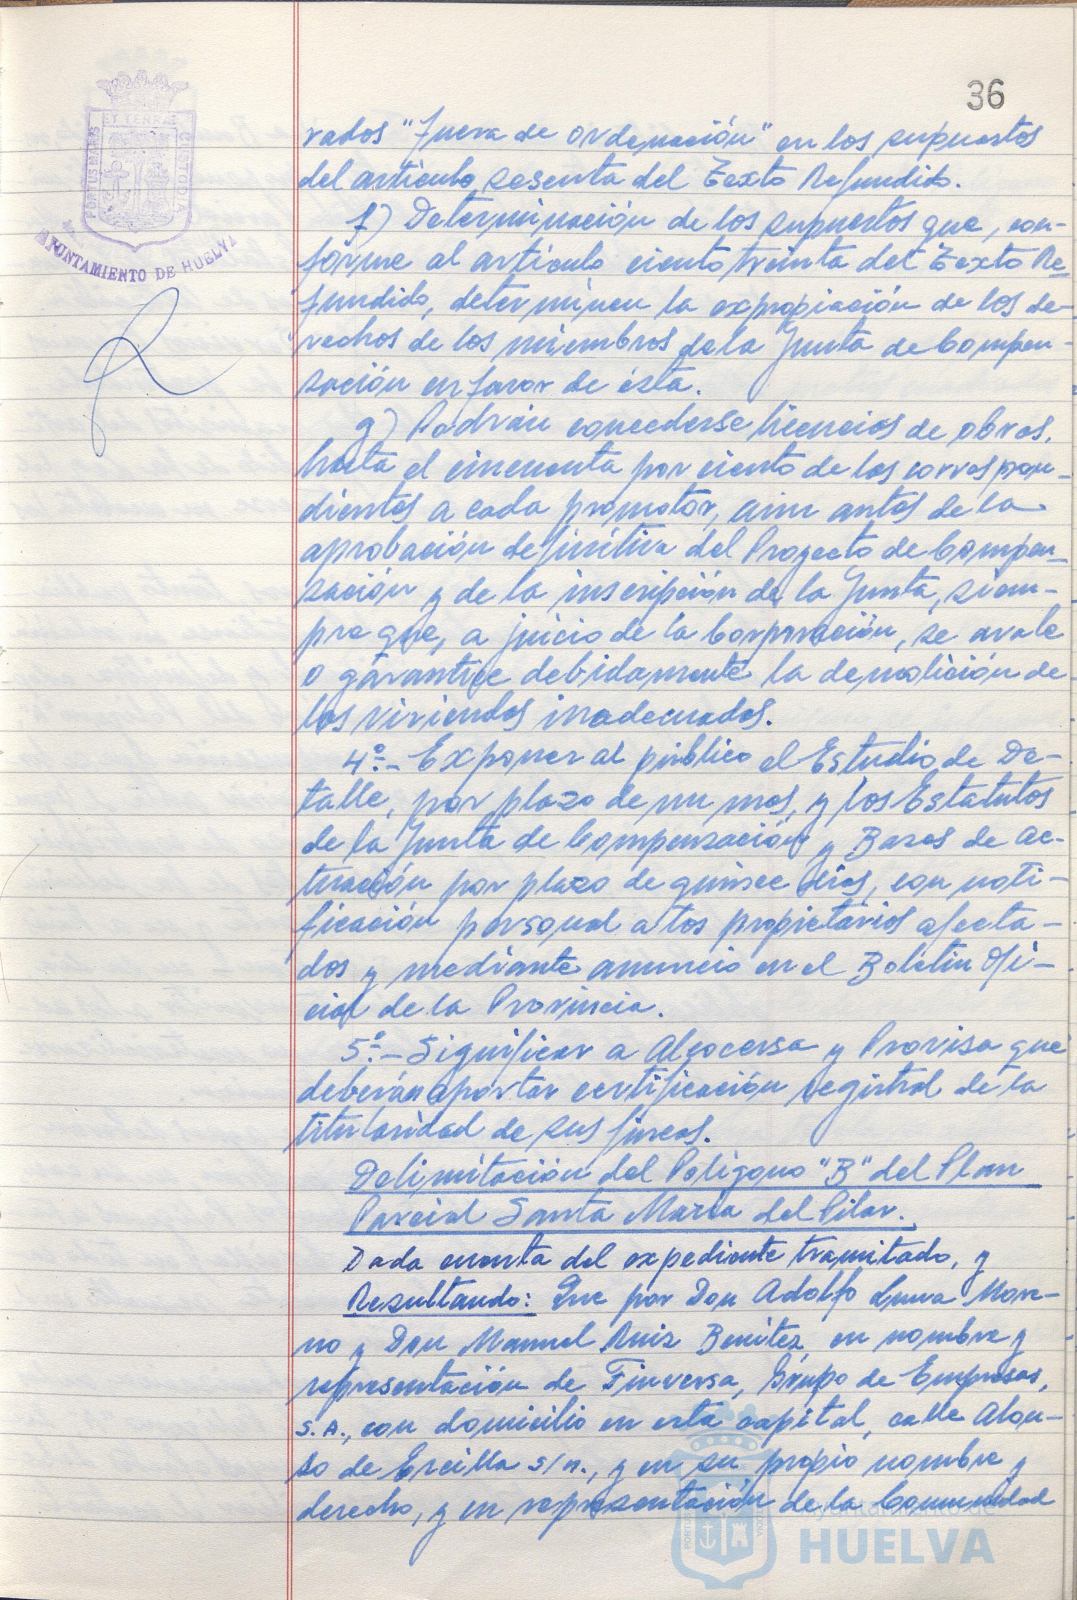 36
PORTUS MARIS
ET TERRAE
CUSTODIA
AYUNTAMIENTO DE HUELVA
rados "Fuera de ordenación" en los supuestos
del artículo sesenta del Texto Refundido.
f) Determinación de los supuestos que, con-
forme al artículo ciento treinta del Texto Re-
fundido, determinen la expropiación de los de-
rechos de los miembros de la Junta de Compen-
sación en favor de ésta.
g) Podrán concederse licencias de obras,
hasta el cincuenta por ciento de las correspon-
dientes a cada promotor, aún antes de la
aprobación definitiva del Proyecto de Compen-
sación y de la inscripción de la Junta, siem-
pre que, a juicio de la Corporación, se avale
o garantice debidamente la demolición de
las viviendas inadecuadas.
4º.- Exponer al público el Estudio de De-
talle, por plazo de un mes, y los Estatutos
de la Junta de Compensación y Bases de Ac-
tuación por plazo de quince días, con noti-
ficación personal a los propietarios afecta-
dos y mediante anuncio en el Boletín Ofi-
cial de la Provincia.
5º.- Significar a Alcocersa y Provisa que
deberán aportar certificación registral de la
titularidad de sus fincas.
Delimitación del Polígono "B" del Plan
Parcial Santa María del Pilar.
Dada cuenta del expediente tramitado, y
Resultando: Que por Don Adolfo Luna More-
no y Don Manuel Ruiz Benítez, en nombre y
representación de Finversa, Grupo de Empresas,
S.A., con domicilio en esta capital, calle Alon-
so de Ercilla s/n., y en su propio nombre y
derecho, y en representación de la Comunidad
Ayuntamiento de
HUELVA